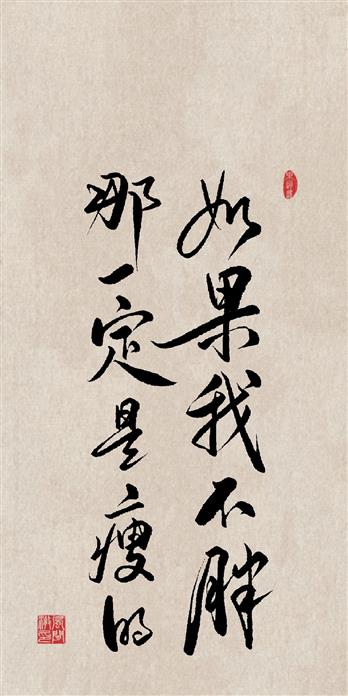 如果我不胖
那一定是瘦的